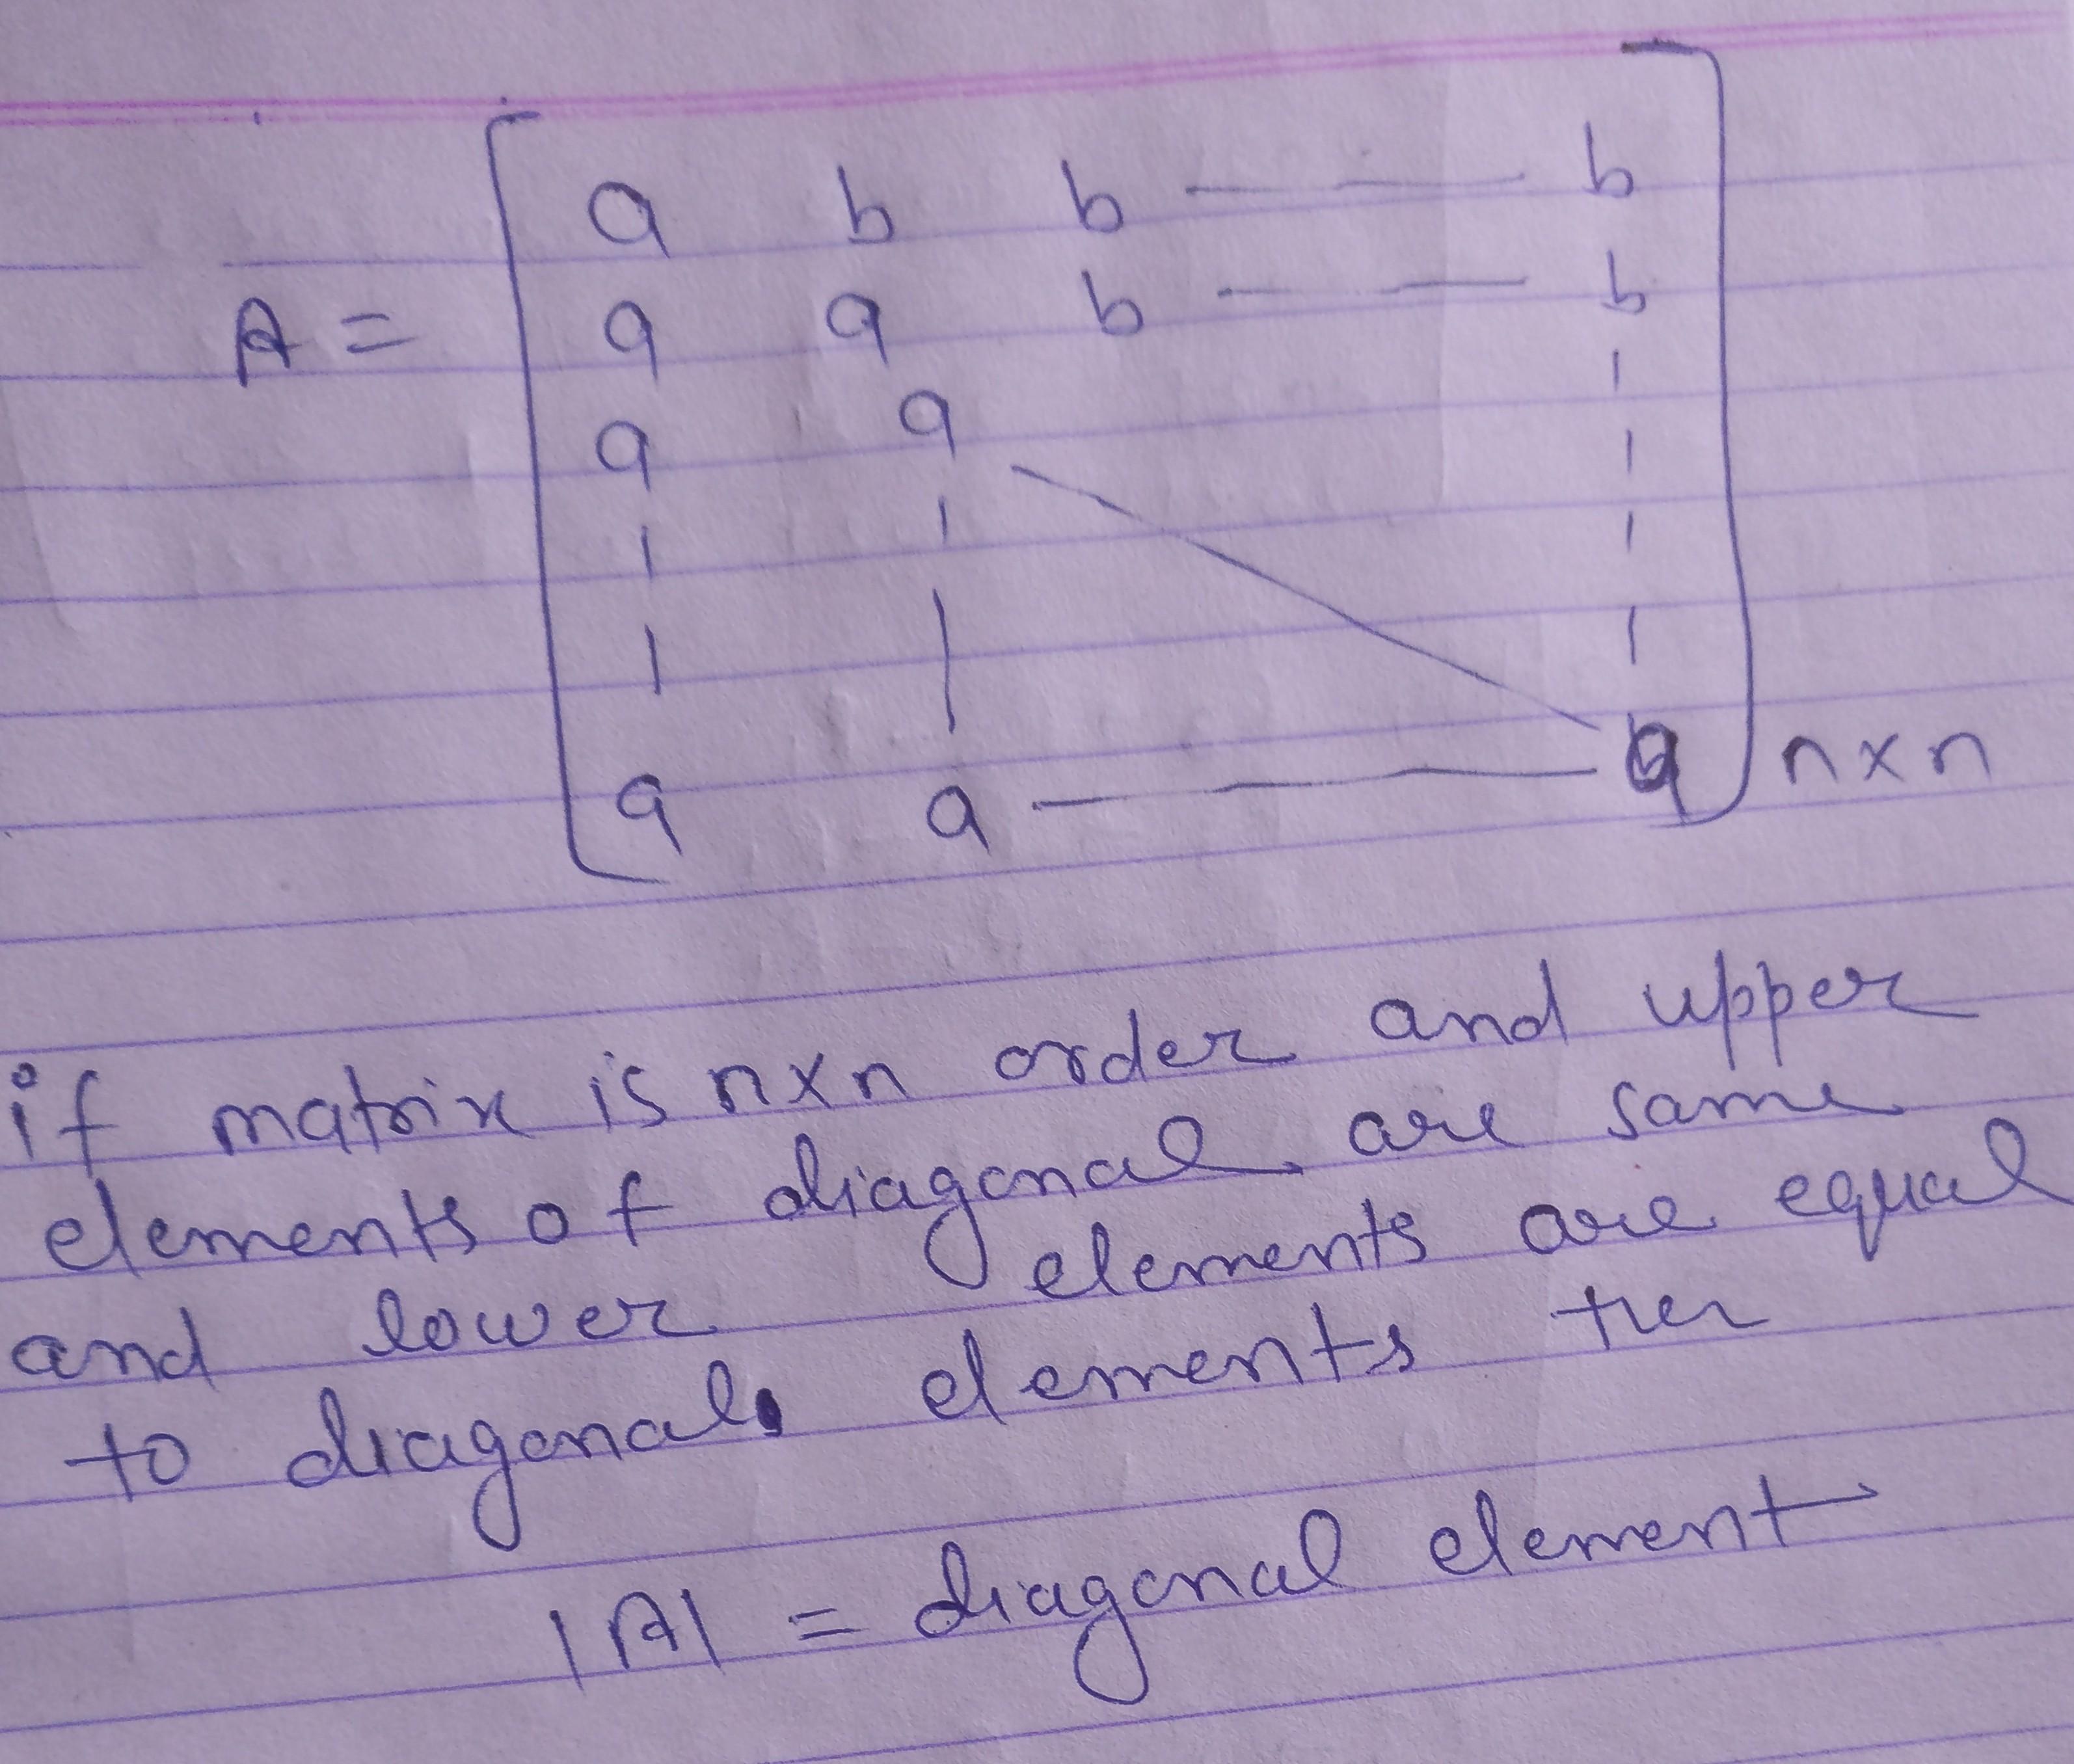 a b b — — b
A = a a b — — b
a a
a a — — a n×n
if matrix is n×n order and upper
elements of diagonal are same
and lower elements are equal
to diagonal elements
|A| = diagonal element